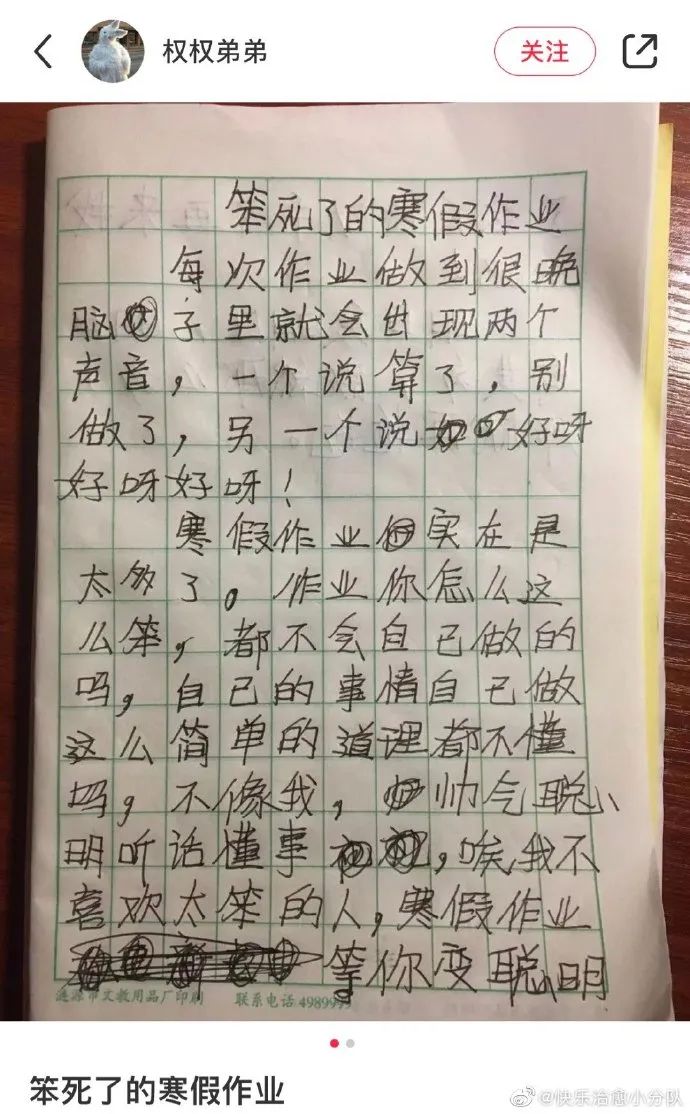 权权弟弟
关注
笨死了的寒假作业
每次作业做到很晚
脑子里就会出现两个
声音，一个说算了，别
做了，另一个说好呀
好呀好呀！
寒假作业实在是
太多了。作业你怎么这
么笨，都不会自己做的
吗，自己的事情自己做
这么简单的道理都不懂
吗，不像我，帅气聪
明听话懂事，唉，我不
喜欢太笨的人，寒假作业
等你变聪明
涟源市文教用品厂印刷 联系电话4989999
笨死了的寒假作业
@快乐治愈小分队